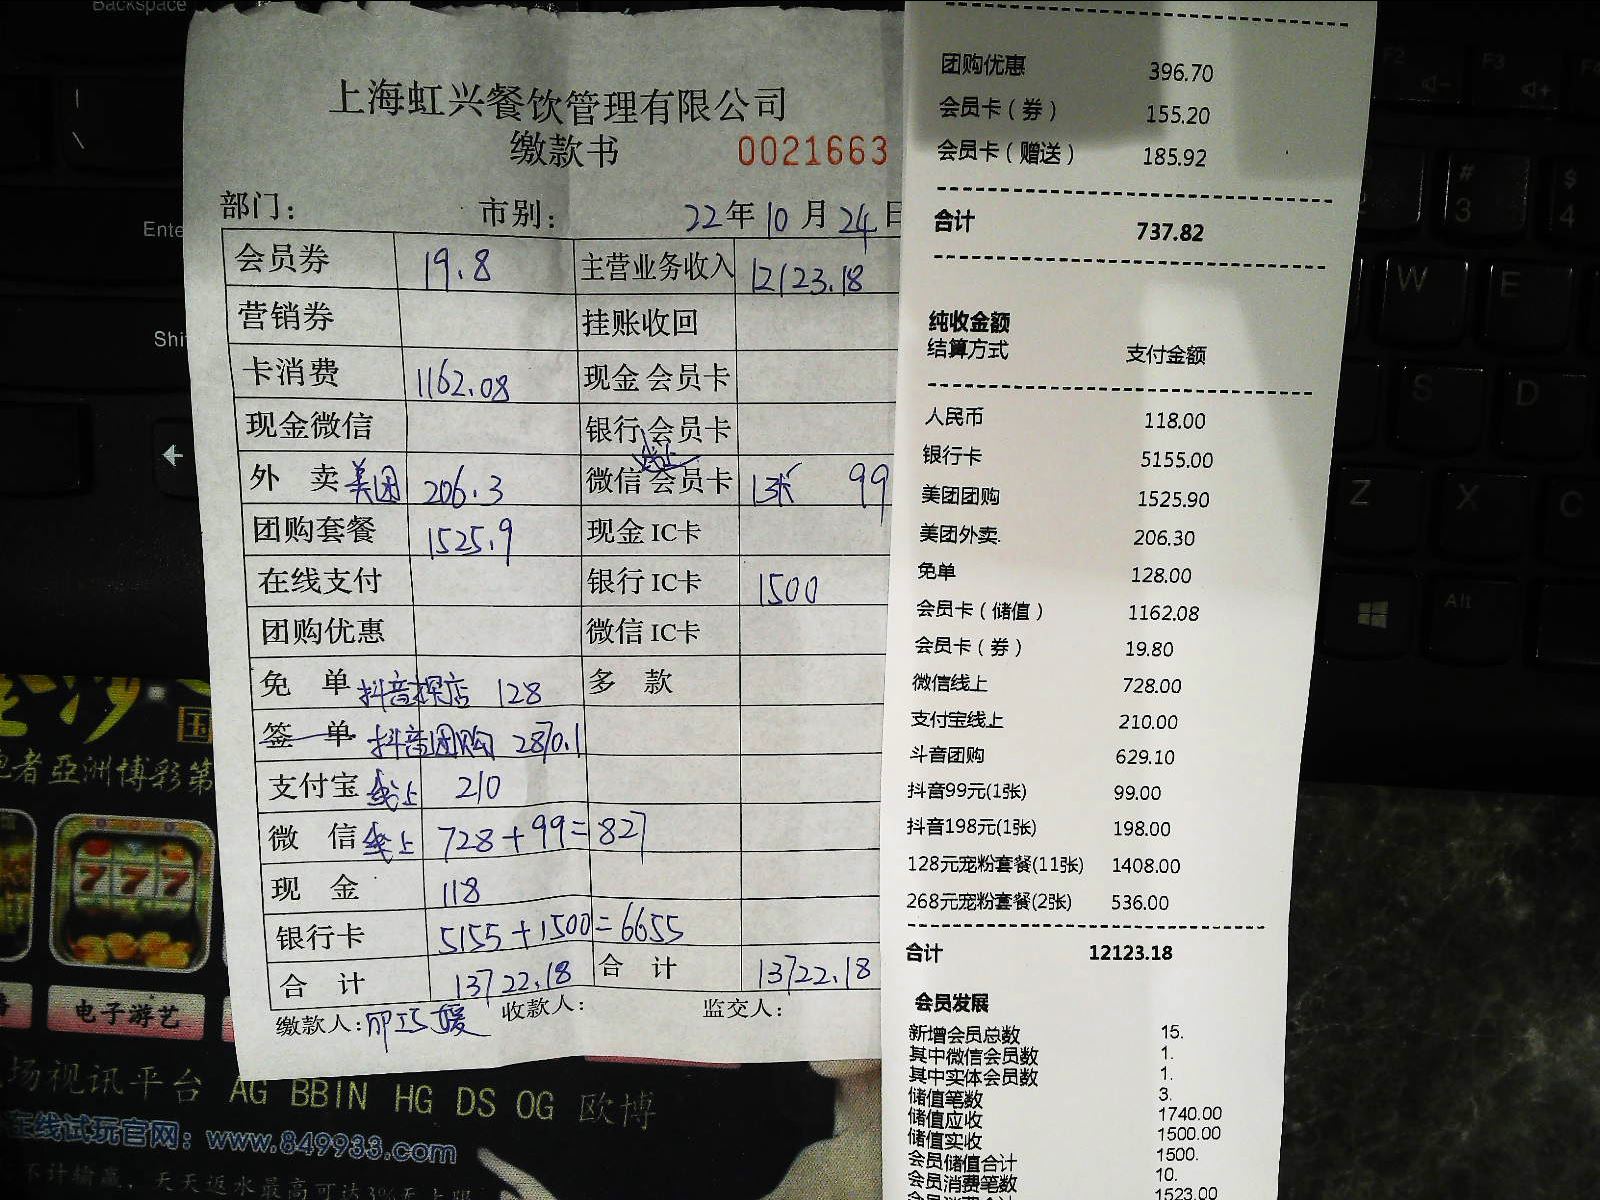 Backspace
上海虹兴餐饮管理有限公司
缴款书 0021663
部门： 市别： 22年10月24日
会员券 19.8 主营业务收入 12123.18
营销券 挂账收回
卡消费 1162.08 现金 会员卡
现金微信 银行 会员卡
外 卖 美团 206.3 微信 线上 会员卡 13张 99
团购套餐 1525.9 现金 IC卡
在线支付 银行 IC卡 1500
团购优惠 微信 IC卡
免 单 抖音探店 128 多 款
签 单 抖音团购 2870.1
支付宝 线上 210
微 信 线上 728+99=827
现 金 118
银行卡 5155+1500=6655
合 计 13722.18 合 计 13722.18
缴款人： 收款人： 监交人：
团购优惠 396.70
会员卡（券） 155.20
会员卡（赠送） 185.92
合计 737.82
纯收金额
结算方式 支付金额
人民币 118.00
银行卡 5155.00
美团团购 1525.90
美团外卖. 206.30
免单 128.00
会员卡（储值） 1162.08
会员卡（券） 19.80
微信线上 728.00
支付宝线上 210.00
斗音团购 629.10
抖音99元(1张) 99.00
抖音198元(1张) 198.00
128元宠粉套餐(11张) 1408.00
268元宠粉套餐(2张) 536.00
合计 12123.18
会员发展
新增会员总数 15.
其中微信会员数 1.
其中实体会员数 1.
储值笔数 3.
储值应收 1740.00
储值实收 1500.00
会员储值合计 1500.
会员消费笔数 10.
1523.00
Ente
Shi
F2
F3
#
3
$
4
W
E
S
D
Z
X
C
Alt
国
者亞洲博彩第
777
电子游艺
场视讯平台 AG BBIN HG DS OG 欧博
在线试玩官网：www.849933.com
不计输赢，天天返水最高可达3%无上限